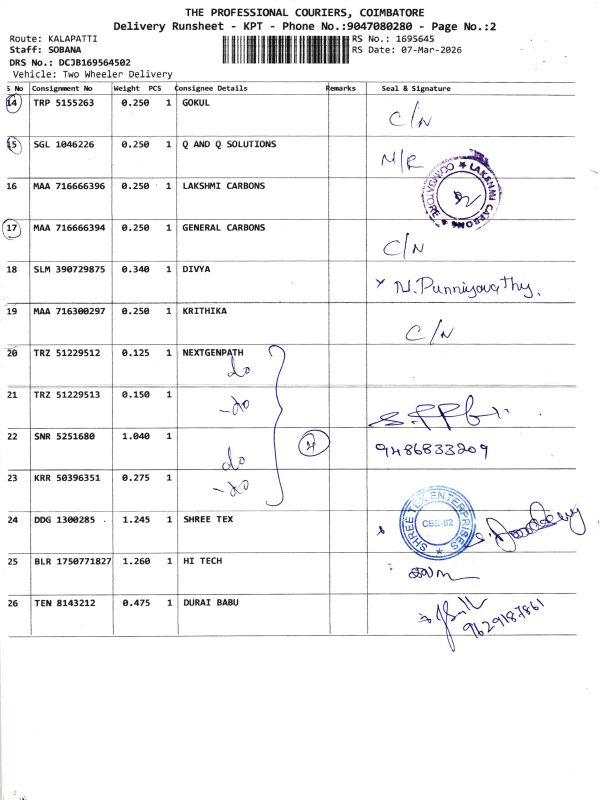 THE PROFESSIONAL COURIERS, COIMBATORE
Delivery Runsheet - KPT - Phone No.:9047080280 - Page No.:2
Route: KALAPATTI RS No.: 1695645
Staff: SOBANA RS Date: 07-Mar-2026
DRS No.: DCJB169564502
Vehicle: Two Wheeler Delivery
S No Consignment No Weight PCS Consignee Details Remarks Seal & Signature
14 TRP 5155263 0.250 1 GOKUL C/N
15 SGL 1046226 0.250 1 Q AND Q SOLUTIONS M/R
16 MAA 716666396 0.250 1 LAKSHMI CARBONS LAKSHMI CARBONS COIMBATORE
17 MAA 716666394 0.250 1 GENERAL CARBONS C/N
18 SLM 390729875 0.340 1 DIVYA N. Punniyavathy.
19 MAA 716300297 0.250 1 KRITHIKA C/N
20 TRZ 51229512 0.125 1 NEXTGENPATH
do
21 TRZ 51229513 0.150 1
-do
22 SNR 5251680 1.040 1 4 9486833209
do
23 KRR 50396351 0.275 1
-do
24 DDG 1300285 1.245 1 SHREE TEX SHREE TEX ENTERPRISES CBE-62
25 BLR 1750771827 1.260 1 HI TECH
26 TEN 8143212 0.475 1 DURAI BABU 9629187861